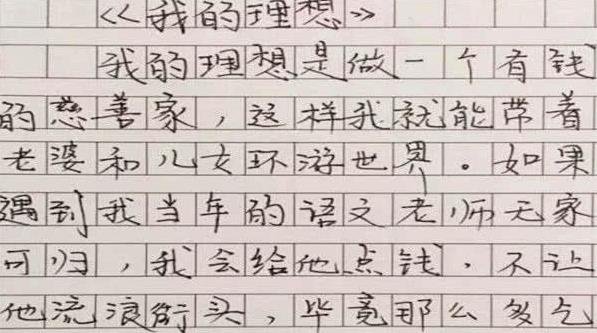 <<我的理想>>
我的理想是做一个有钱
的慈善家，这样我就能带着
老婆和儿女环游世界。如果
遇到我当年的语文老师无家
可归，我会给他点钱，不让
他流浪街头，毕竟那么多